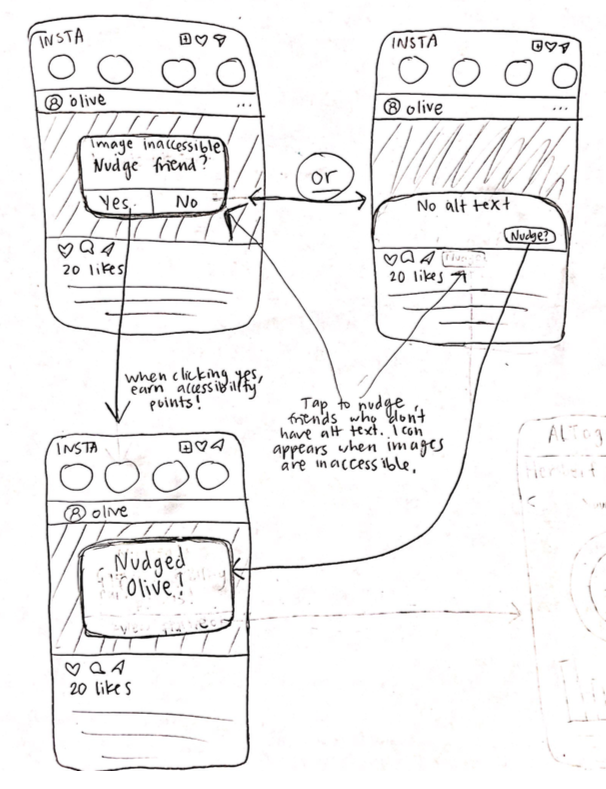 INSTA
olive
...
Image inaccessible
Nudge friend?
Yes
No
20 likes
or
INSTA
olive
...
No alt text
Nudge?
20 likes
when clicking yes,
earn accessibility
points!
Tap to nudge
friends who don't
have alt text. Icon
appears when images
are inaccessible.
INSTA
olive
Nudged
Olive!
20 likes